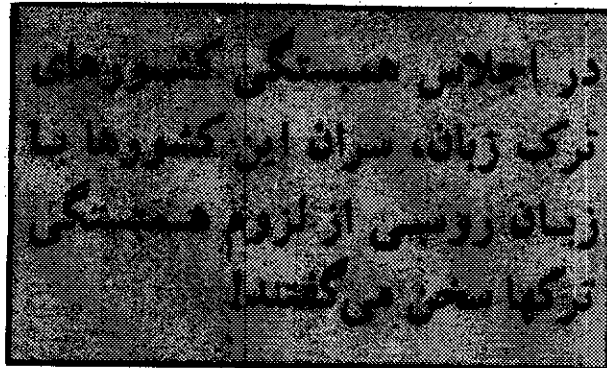 در اجلاس همبستگی کشورهای
ترک زبان، سران این کشورها با
زبان روسی از لزوم همبستگی
ترکها سخن می‌گفتند!